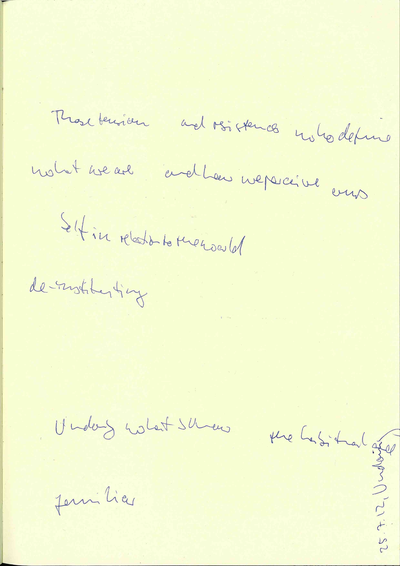 Those tension and resistences who define
what we are and how we perceive ours
Self in relation to the world
de-instituting
Undoing what I know the habitual
familiar
25.7.12, Undoing